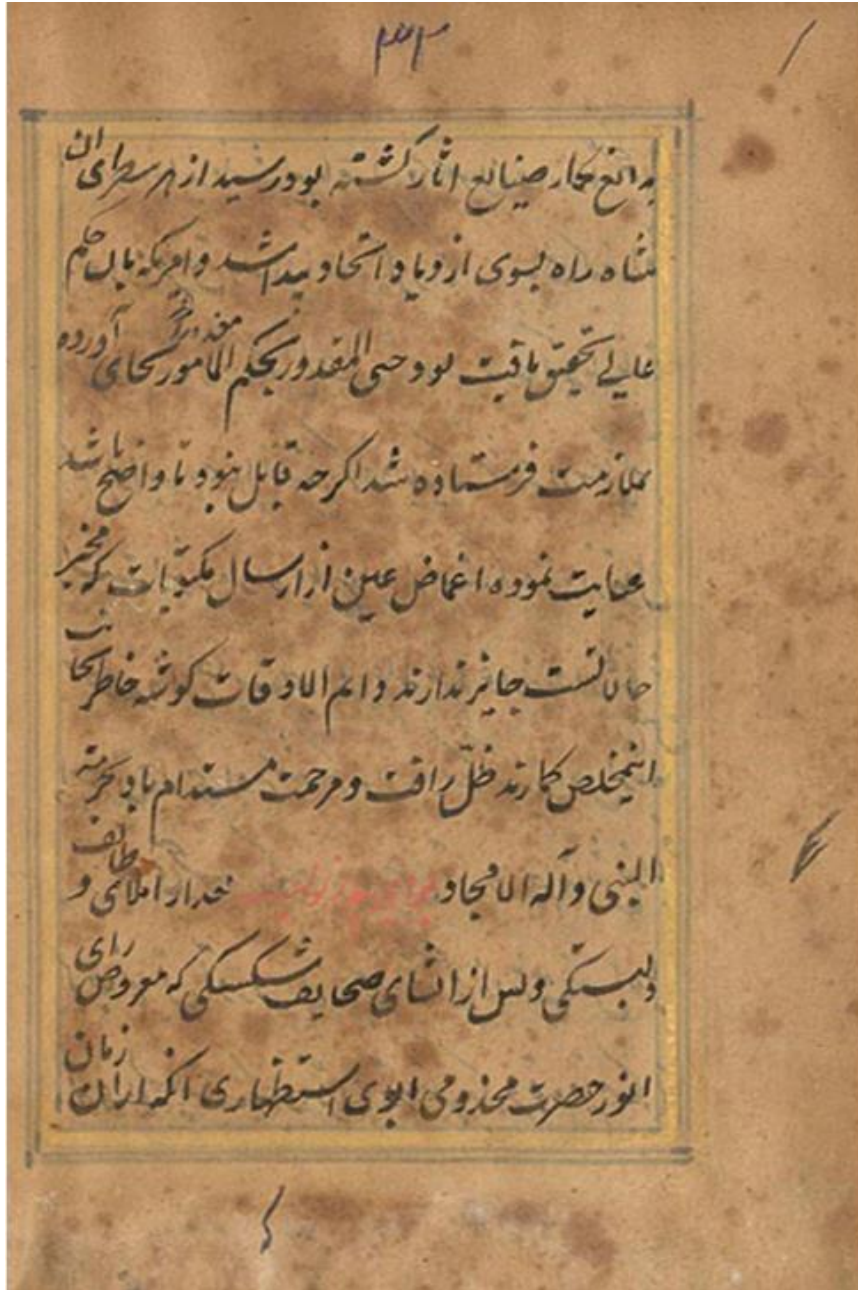 ۳۳
بدائع نگار صنایع اثار گشته بود رسید از هر سطرای ان
شاه راه بسوی ازدیاد اتحاد پیدا شد و امریکه بان حکم
عالی تحقیق یافت بود حتی المقدور بحکم المامور بجای آورده
بملازمت فرستاده شد اگرچه قابل نبود تا واضح باشد
عنایت نموده اغماض عین از ارسال مکتوبات که مخبر
حالاتست جایز ندارند دایم الاوقات گوشه خاطر بجانب
اینمخلص گمارند ظل رافت و مرحمت مستدام باد بحرمة
النبی و آله الامجاد بعد از املای وظایف
دلبستگی و پس از انشای صحایف شکستگی که معروض رای
انور حضرت مخذومی ابوی استظهاری انکه اران زمان